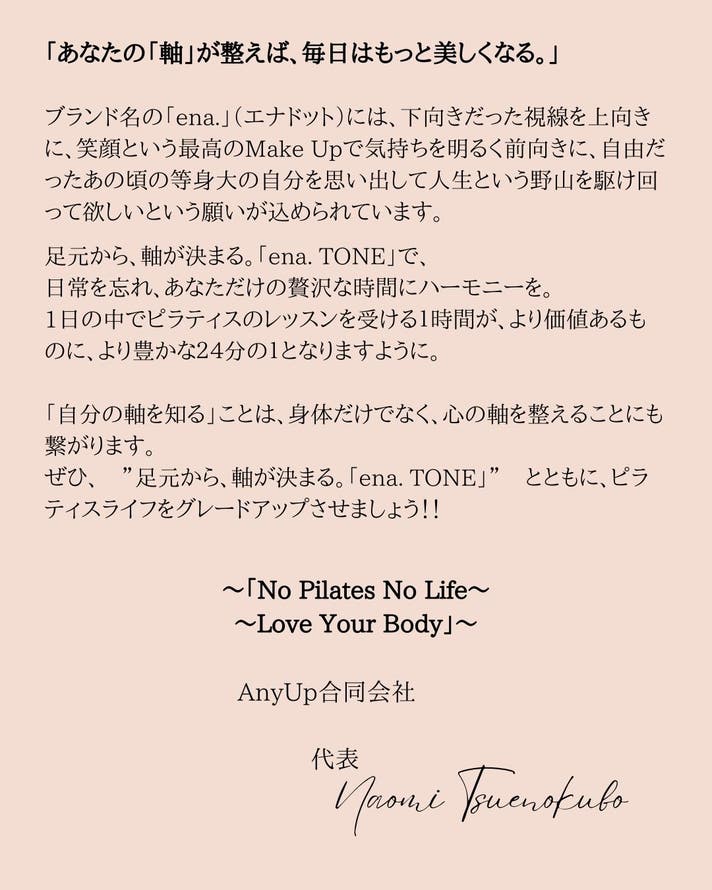 「あなたの「軸」が整えば、毎日はもっと美しくなる。」
ブランド名の「ena.」（エナドット）には、下向きだった視線を上向き
に、笑顔という最高のMake Upで気持ちを明るく前向きに、自由だ
ったあの頃の等身大の自分を思い出して人生という野山を駆け回
って欲しいという願いが込められています。
足元から、軸が決まる。「ena. TONE」で、
日常を忘れ、あなただけの贅沢な時間にハーモニーを。
１日の中でピラティスのレッスンを受ける1時間が、より価値あるも
のに、より豊かな24分の1となりますように。
「自分の軸を知る」ことは、身体だけでなく、心の軸を整えることにも
繋がります。
ぜひ、　”足元から、軸が決まる。「ena. TONE」”　とともに、ピラ
ティスライフをグレードアップさせましょう！！
〜「No Pilates No Life〜
〜Love Your Body」〜
AnyUp合同会社
代表
Naomi Tsuenokubo